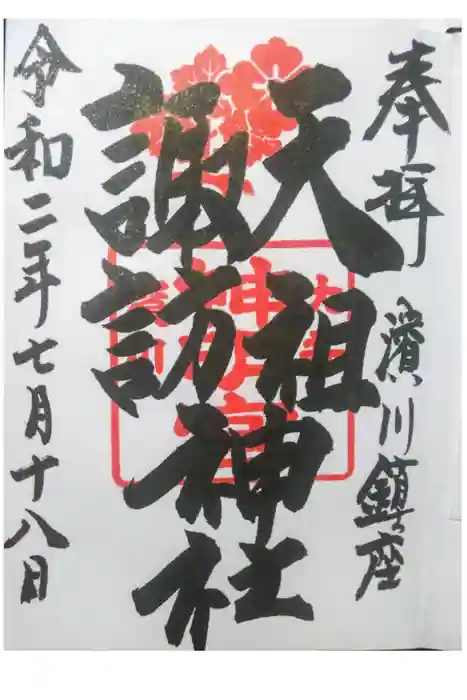 奉拝
濱川鎮座
天祖
諏訪
神社
神明宮
令和二年七月十八日